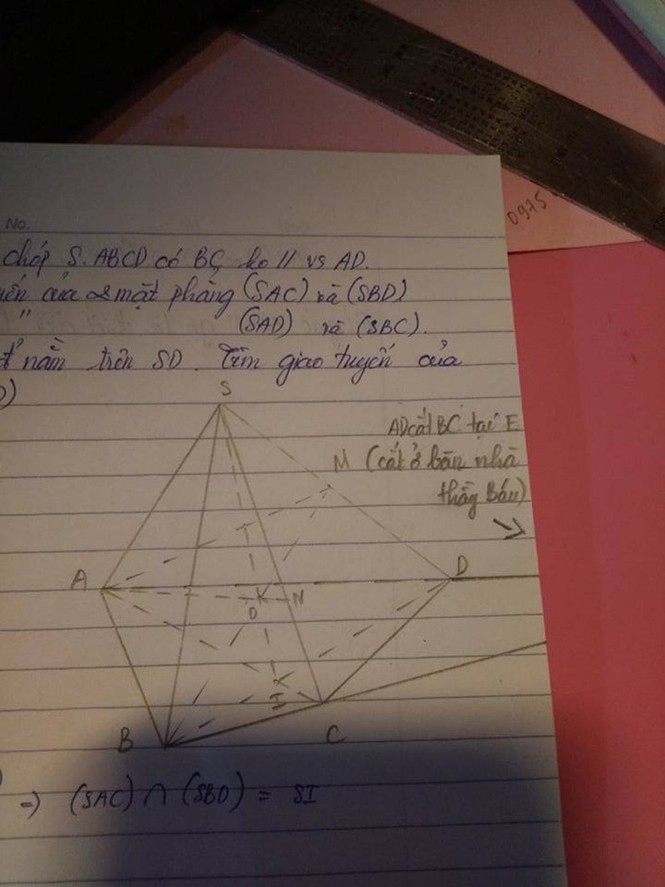 No.
chóp S.ABCD có BC ko // vs AD.
yến của 2 mặt phẳng (SAC) và (SBD)
" (SAD) và (SBC).
nằm trên SD. Tìm giao tuyến của
S
AD cắt BC tại E
M (cắt ở bên nhà
thằng Báu)
A
D
K N
O
I
B
C
=) (SAC) ∩ (SBD) = SI
0975